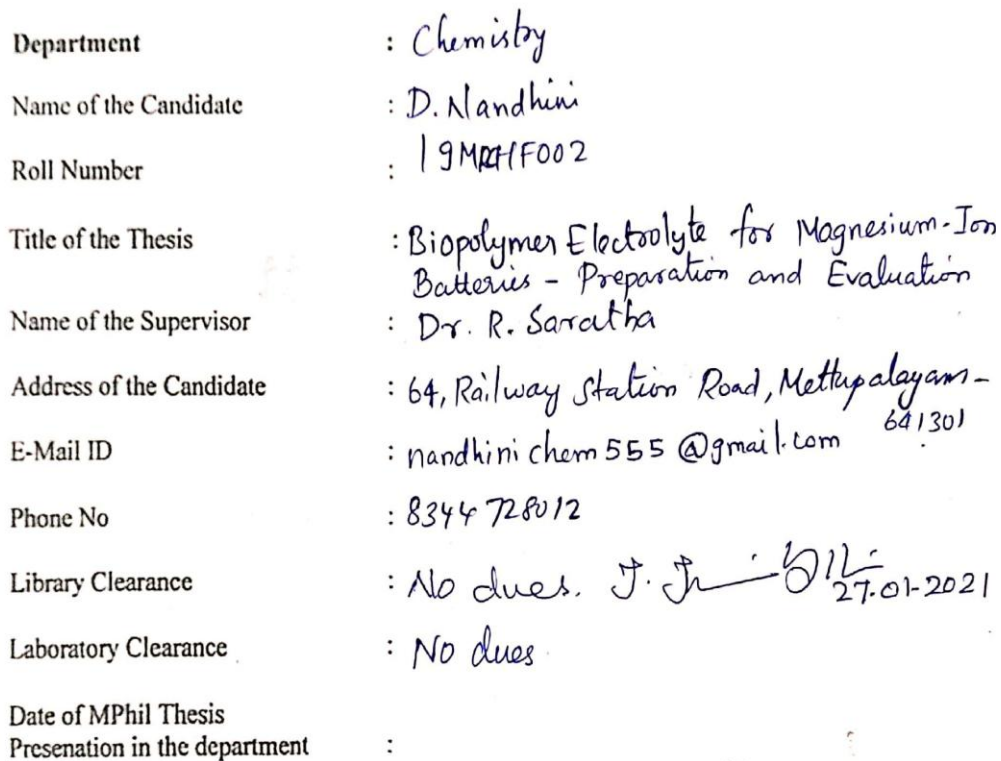 Department : Chemistry
Name of the Candidate : D. Nandhini
Roll Number :
Title of the Thesis : Biopolymer Electrolyte for Magnesium-Ion
Batteries - Preparation and Evaluation
Name of the Supervisor : Dr. R. Saratha
Address of the Candidate : 64, Railway Station Road, Mettupalayam-
641301
E-Mail ID : nandhinichem555@gmail.com
Phone No : 8344728012
Library Clearance : No dues. 27-01-2021
Laboratory Clearance : No dues
Date of MPhil Thesis
Presenation in the department :